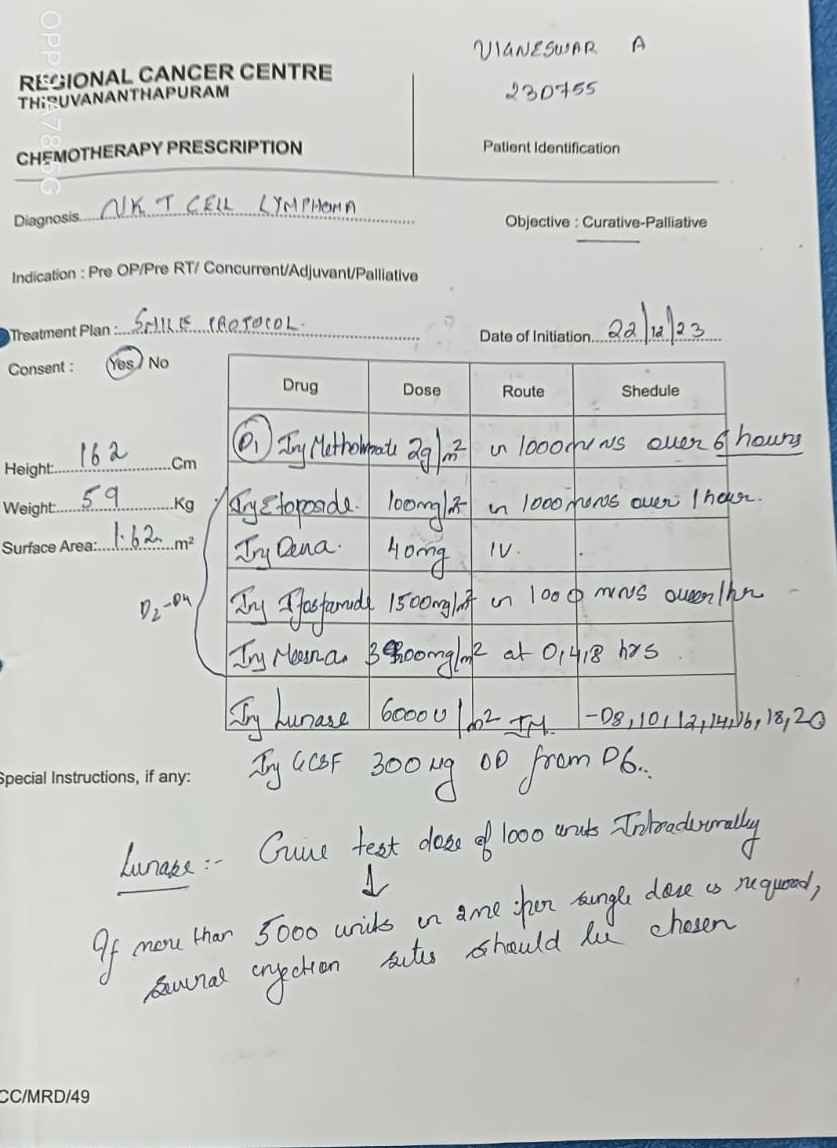 VIGNESWAR A
230755
REGIONAL CANCER CENTRE
THIRUVANANTHAPURAM
Patient Identification
CHEMOTHERAPY PRESCRIPTION
Diagnosis NK T CELL LYMPHOMA
Objective : Curative-Palliative
Indication : Pre OP/Pre RT/ Concurrent/Adjuvant/Palliative
Treatment Plan : SMILE PROTOCOL
Date of Initiation 22/12/23
Consent : Yes / No
Drug Dose Route Shedule
Height: 162 Cm
Weight: 59 Kg
Surface Area: 1.62 m²
D1 Inj Methotrexate 2g/m² in 1000ml NS over 6 hours
D2-D4
Inj Etoposide 100mg/m² in 1000ml NS over 1 hour.
Inj Dexa. 40mg IV.
Inj Ifosfamide 1500mg/m² in 1000 ml NS over 1hr
Inj Mesna 300mg/m² at 0,4,8 hrs.
Inj Lunase 6000 U/m² IM -D8,10,12,14,16,18,20
Special Instructions, if any:
Inj GCSF 300 µg OD from D6..
Lunase :- Give test dose of 1000 units Intradermally
↓
If more than 5000 units in 2ml per single dose is required,
several injection sites should be chosen
CC/MRD/49
OPPO A78 5G